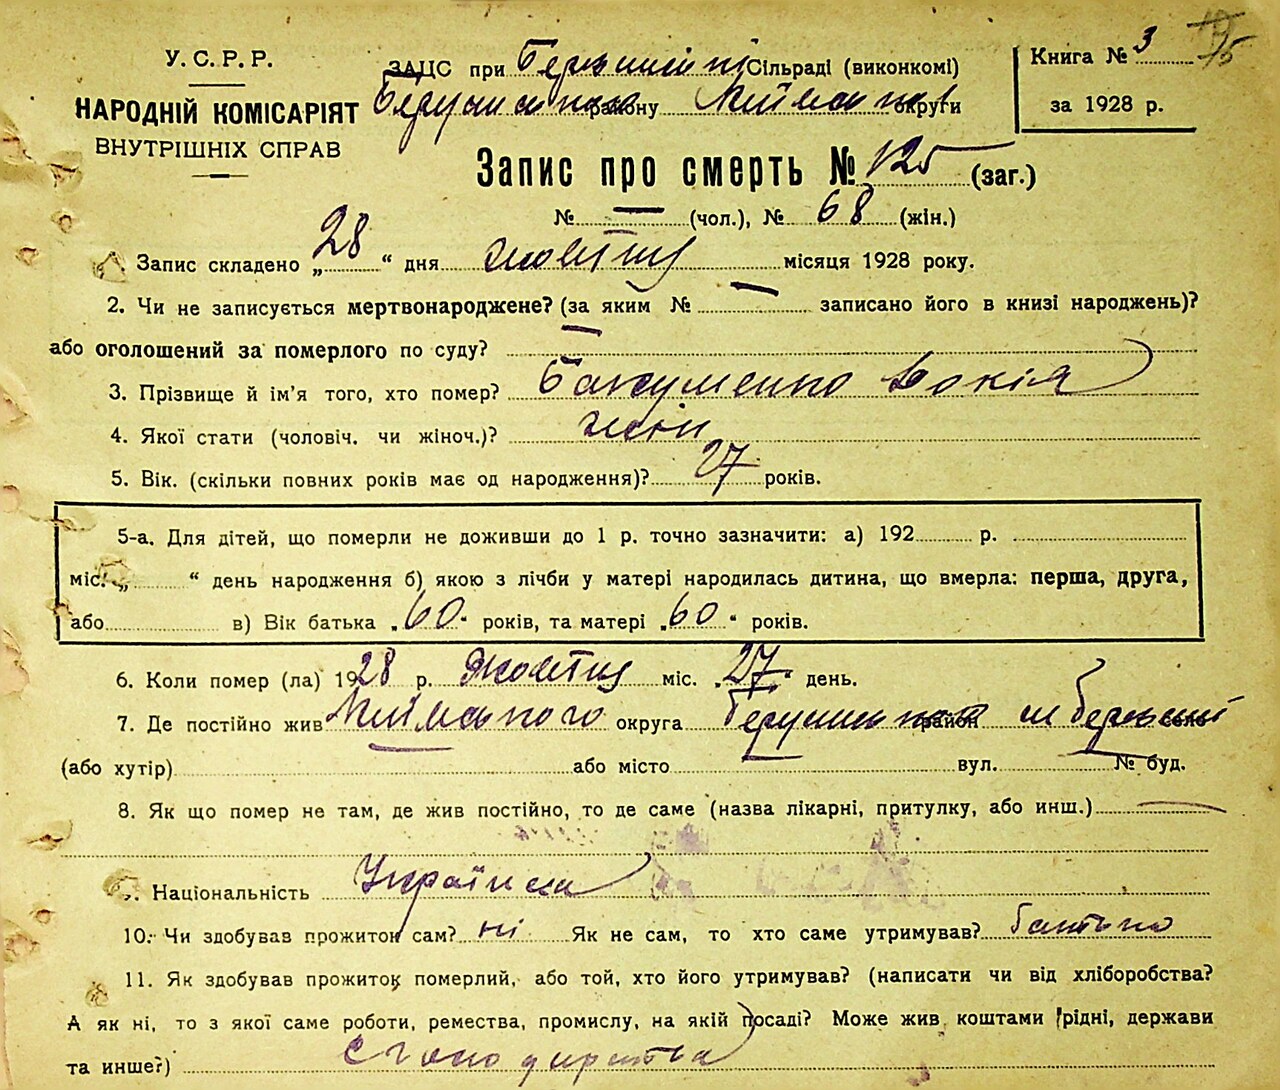 У. С. Р. Р.
НАРОДНІЙ КОМІСАРІЯТ
ВНУТРІШНІХ СПРАВ
ЗАЦС при Сільраді (виконкомі)
району округи
Книга № 3
за 1928 р.
Запис про смерть № 125 (заг.)
№ — (чол.), № 68 (жін.)
Запис складено „28“ дня жовтня місяця 1928 року.
2. Чи не записується мертвонароджене? (за яким № — записано його в книзі народжень)?
або оголошений за померлого по суду? —
3. Прізвище й ім'я того, хто помер? Бакуменко Вокія
4. Якої стати (чоловіч. чи жіноч.)? жін
5. Вік. (скільки повних років має од народження)? 27 років.
5-а. Для дітей, що померли не доживши до 1 р. точно зазначити: а) 192 р.
міс. „ “ день народження б) якою з лічби у матері народилась дитина, що вмерла: перша, друга,
або в) Вік батька „60“ років, та матері „60“ років.
6. Коли помер (ла) 1928 р. Жовтня міс. „27“ день.
7. Де постійно жив округа район село
(або хутір) або місто вул. № буд.
8. Як що помер не там, де жив постійно, то де саме (назва лікарні, притулку, або инш.) —
9. Національність Українка
10. Чи здобував прожиток сам? ні Як не сам, то хто саме утримував? батько
11. Як здобував прожиток померлий, або той, хто його утримував? (написати чи від хліборобства?
А як ні, то з якої саме роботи, ремества, промислу, на якій посаді? Може жив коштами рідні, держави
та инше?) с господарства